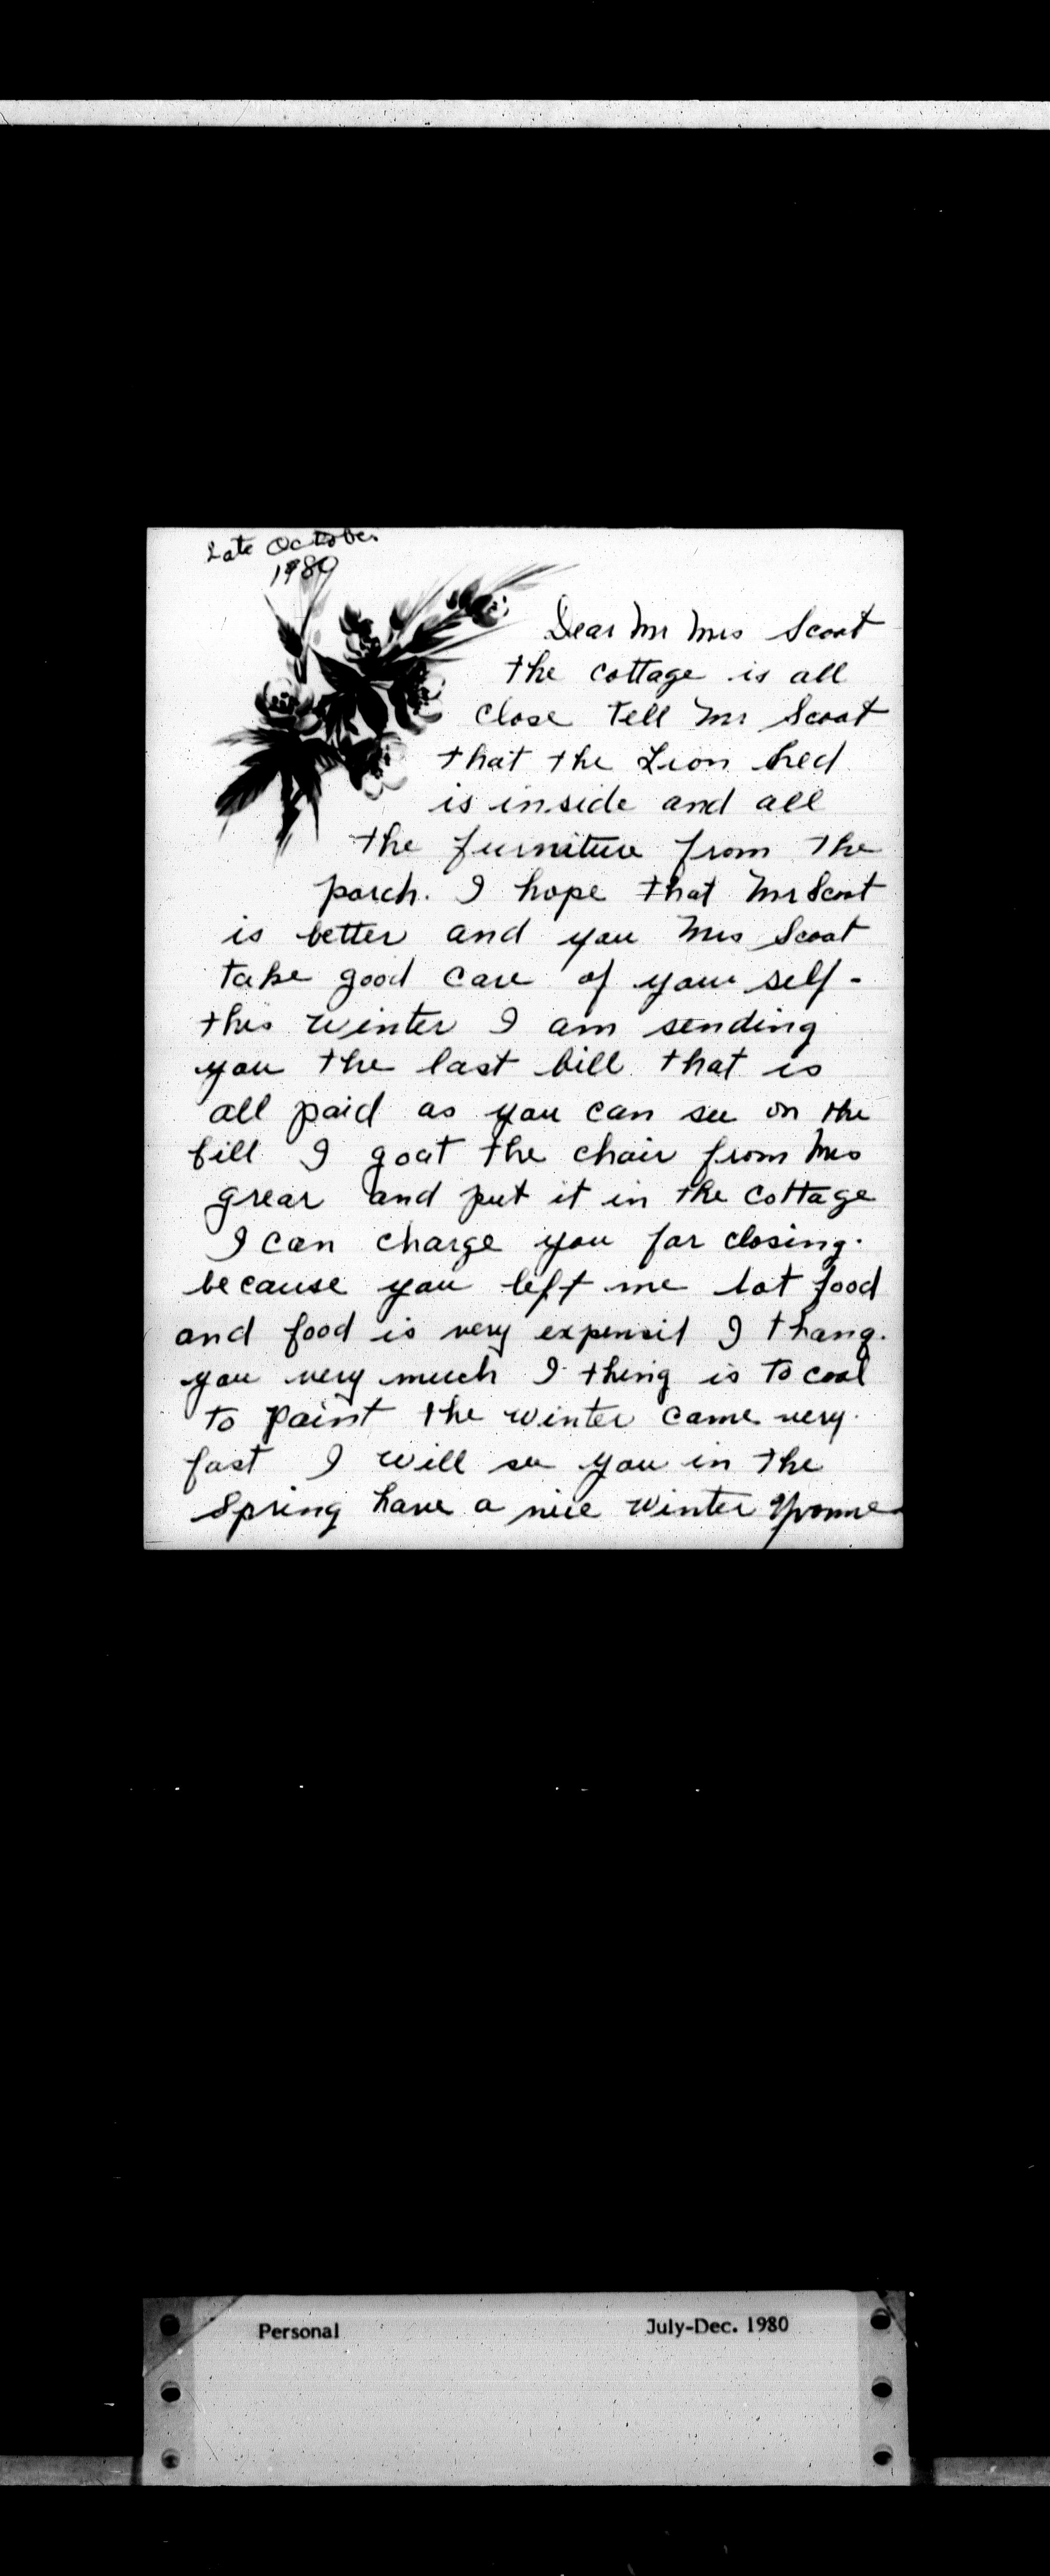 Late October
1980
Dear Mr Mrs Scoot
the cottage is all
close Tell Mr Scoot
that the Lion hed
is inside and all
the furniture from the
porch. I hope that Mr Scoot
is better and you Mrs Scoot
take good care of your self -
this winter I am sending
you the last bill that is
all paid as you can see on the
bill I goat the chair from Mrs
grear and put it in the cottage
I can charge you for closing.
because you left me lot food
and food is very expensit I thang.
you very much I thing is to cool
to paint the winter came very.
fast I will see you in the
Spring have a nice winter Yvonne
Personal July-Dec. 1980